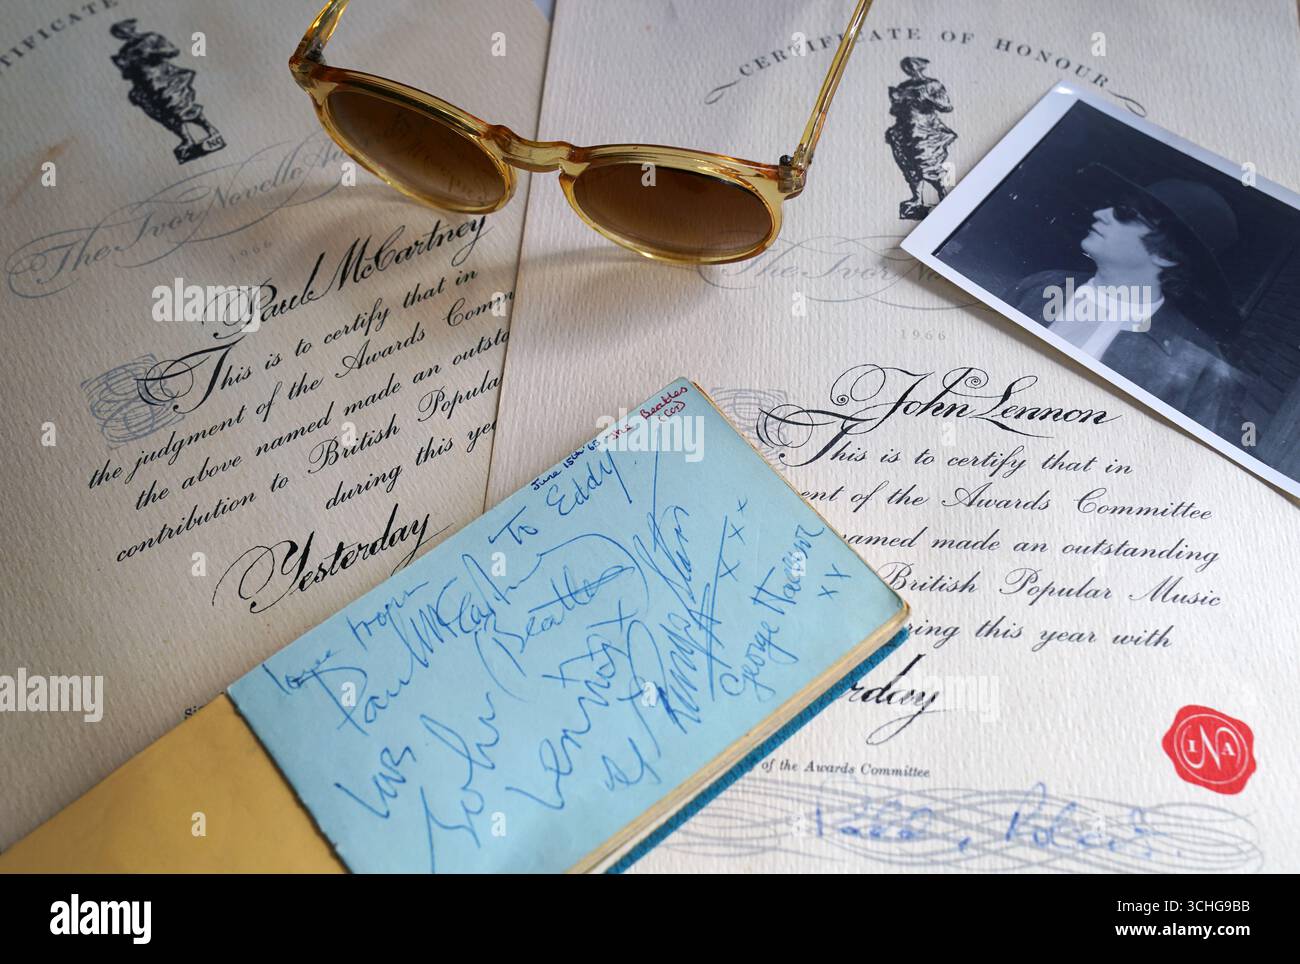 CERTIFICATE
The Ivor Novello
1966
Paul McCartney
This is to certify that in
the judgment of the Awards Comm
the above named made an outsta
contribution to British Popula
during this year
Yesterday
CERTIFICATE OF HONOUR
The Ivor Novello
1966
John Lennon
This is to certify that in
ent of the Awards Committee
named made an outstanding
British Popular Music
ring this year with
rday
of the Awards Committee
INA
June 15th '63 The Beatles
To Eddy
love from
Paul McCartney
(Beatles)
John Lennon
xxx
George Harrison
xx
alamy
Image ID: 3CHG9BB
www.alamy.com